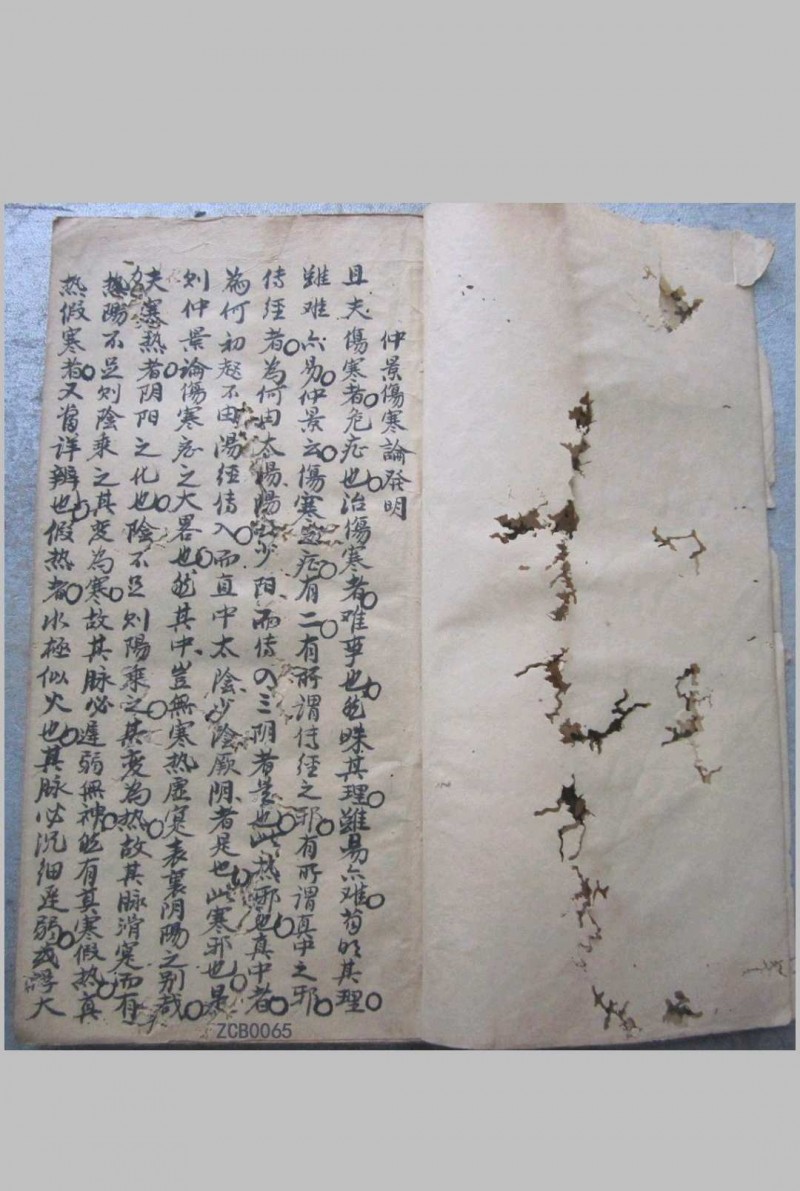 仲景傷寒論發明
且夫傷寒者危症也治傷寒者难事也然昧其理雖易亦难苟明其理
雖难亦易仲景云傷寒之症有二有所謂传经之邪有所謂真中之邪
传经者為何由太陽陽明少阳而传入三阴者是也此热邪也真中者
為何初起不由阳经传入而直中太陰少陰厥阴者是也此寒邪也是
则仲景論傷寒症之大畧也然其中豈無寒热虚寔表裏阴陽之别哉
夫寒热者阴阳之化也陰不足则陽乘之其变為热故其脉滑寔而有
力陽不足则陰乘之其変為寒故其脉必遲弱無神然有真寒假热真
热假寒者又當详辨也假热者水極似火也其脉必沉细遲弱或浮大
ZCB0065